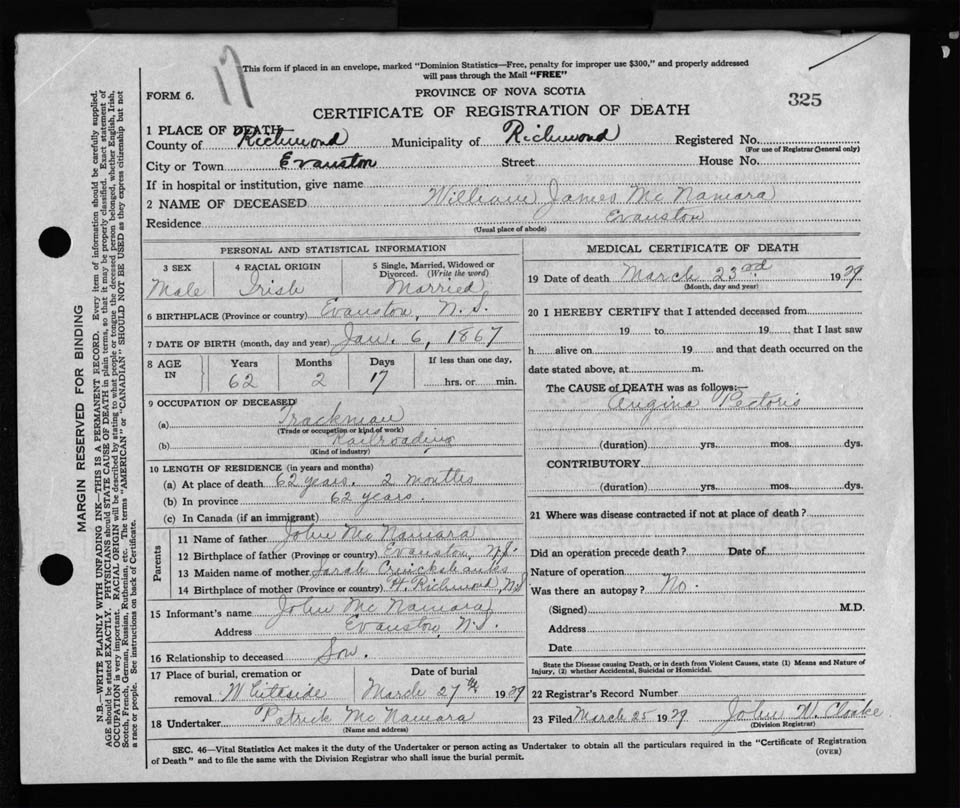 17
This form if placed in an envelope, marked "Dominion Statistics—Free, penalty for improper use $300," and properly addressed
will pass through the Mail "FREE"
FORM 6.
PROVINCE OF NOVA SCOTIA
325
CERTIFICATE OF REGISTRATION OF DEATH
1 PLACE OF DEATH—
County of Richmond Municipality of Richmond Registered No.
(For use of Registrar General only)
City or Town Evanston Street House No.
If in hospital or institution, give name
2 NAME OF DECEASED William James McNamara
Residence Evanston
(Usual place of abode)
PERSONAL AND STATISTICAL INFORMATION
3 SEX 4 RACIAL ORIGIN 5 Single, Married, Widowed or Divorced. (Write the word)
Male Irish Married
6 BIRTHPLACE (Province or country) Evanston, N.S.
7 DATE OF BIRTH (month, day and year) Jan. 6, 1867
8 AGE IN Years Months Days If less than one day,
62 2 17 hrs. or min.
9 OCCUPATION OF DECEASED
(a) Trackman
(Trade or occupation or kind of work)
(b) Railroading
(Kind of industry)
10 LENGTH OF RESIDENCE (in years and months)
(a) At place of death 62 years. 2 months
(b) In province 62 years.
(c) In Canada (if an immigrant)
Parents
11 Name of father John McNamara
12 Birthplace of father (Province or country) Evanston, N.S.
13 Maiden name of mother Sarah Cruickshanks
14 Birthplace of mother (Province or country) Richmond, N.S
15 Informant's name John McNamara
Address Evanston, N.S.
16 Relationship to deceased Son.
17 Place of burial, cremation or Date of burial
removal Whiteside March 27th 1929
18 Undertaker Patrick McNamara
(Name and address)
MEDICAL CERTIFICATE OF DEATH
19 Date of death March 23rd 1929
(Month, day and year)
20 I HEREBY CERTIFY that I attended deceased from
19 to 19 that I last saw
h alive on 19 and that death occurred on the
date stated above, at m.
The CAUSE of DEATH was as follows:—
Angina Pectoris
(duration) yrs. mos. dys.
CONTRIBUTORY
(duration) yrs. mos. dys.
21 Where was disease contracted if not at place of death?
Did an operation precede death? Date of
Nature of operation
Was there an autopsy? No.
(Signed) M.D.
Address
Date
State the Disease causing Death, or in death from Violent Causes, state (1) Means and Nature of
Injury, (2) whether Accidental, Suicidal or Homicidal.
22 Registrar's Record Number
23 Filed March 25 1929 John W. Cloake
(Division Registrar)
SEC. 46—Vital Statistics Act makes it the duty of the Undertaker or person acting as Undertaker to obtain all the particulars required in the "Certificate of Registration
of Death" and to file the same with the Division Registrar who shall issue the burial permit.
(OVER)
MARGIN RESERVED FOR BINDING
N.B.—WRITE PLAINLY WITH UNFADING INK—THIS IS A PERMANENT RECORD. Every item of information should be carefully supplied.
AGE should be stated EXACTLY. PHYSICIANS should STATE CAUSE OF DEATH in plain terms, so that it may be properly classified. Exact statement of
OCCUPATION is very important. RACIAL ORIGIN will be described by stating to what people or tongue the deceased person belonged, whether English, Irish,
Scotch, French, German, Russian, Ruthenian, etc. The terms "AMERICAN" or "CANADIAN" SHOULD NOT BE USED as they express citizenship but not
a race or people. See instructions on back of Certificate.